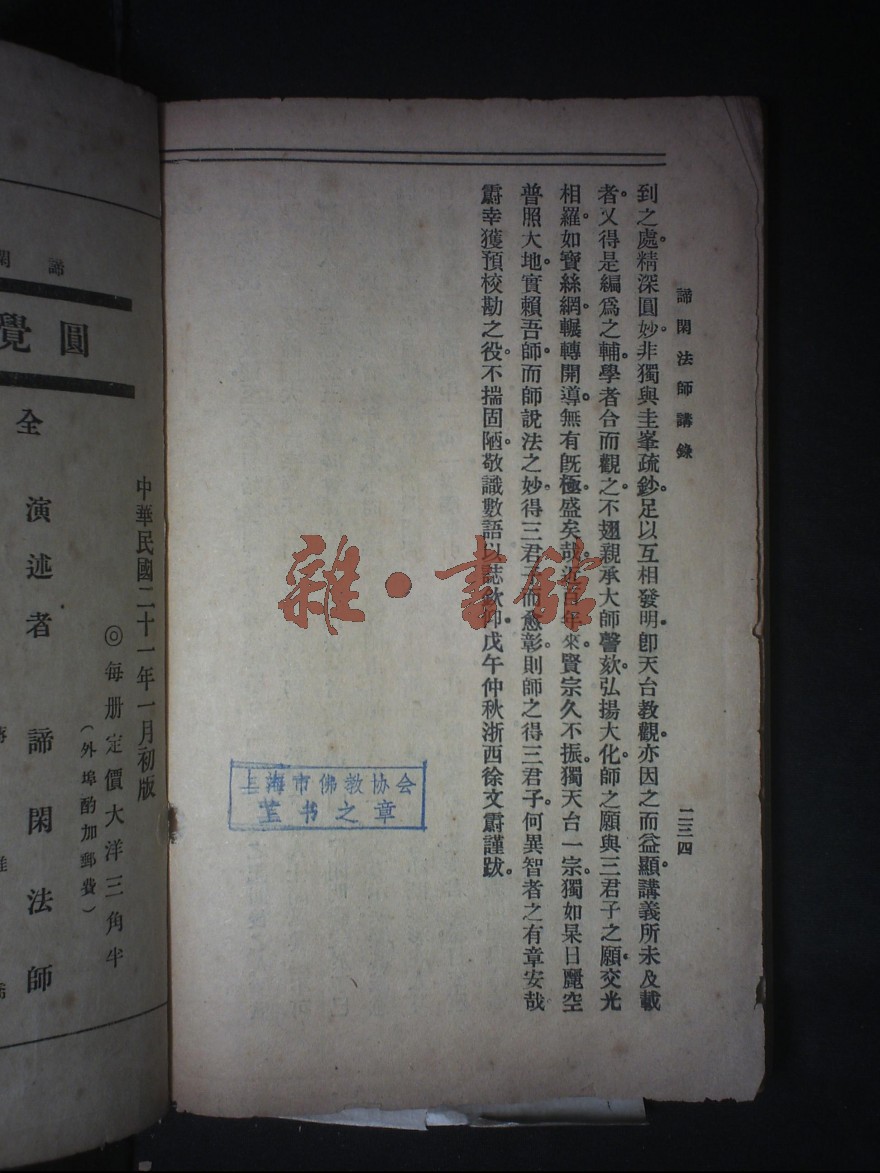 諦閑法師講錄
一三四
到之處。精深圓妙。非獨與圭峯疏鈔。足以互相發明。卽天台教觀。亦因之而益顯。講義所未及載
者。又得是編爲之輔。學者合而觀之。不翅親承大師謦欬。弘揚大化。師之願與三君子之願。交光
相羅。如寶絲網。輾轉開導。無有旣極。盛矣哉。近百年來。賢宗久不振。獨天台一宗。獨如杲日麗空
普照大地。實賴吾師。而師說法之妙。得三君子而愈彰。則師之得三君子。何異智者之有章安哉
霨幸獲預校勘之役。不揣固陋。敬識數語以誌欽仰。戊午仲秋浙西徐文霨謹跋。
雜·書館
上海市佛教协会
书之章
中華民國二十一年一月初版
◎每册定價大洋三角半
（外埠酌加郵費）
諦閑
圓覺
全
演述者 諦閑法師